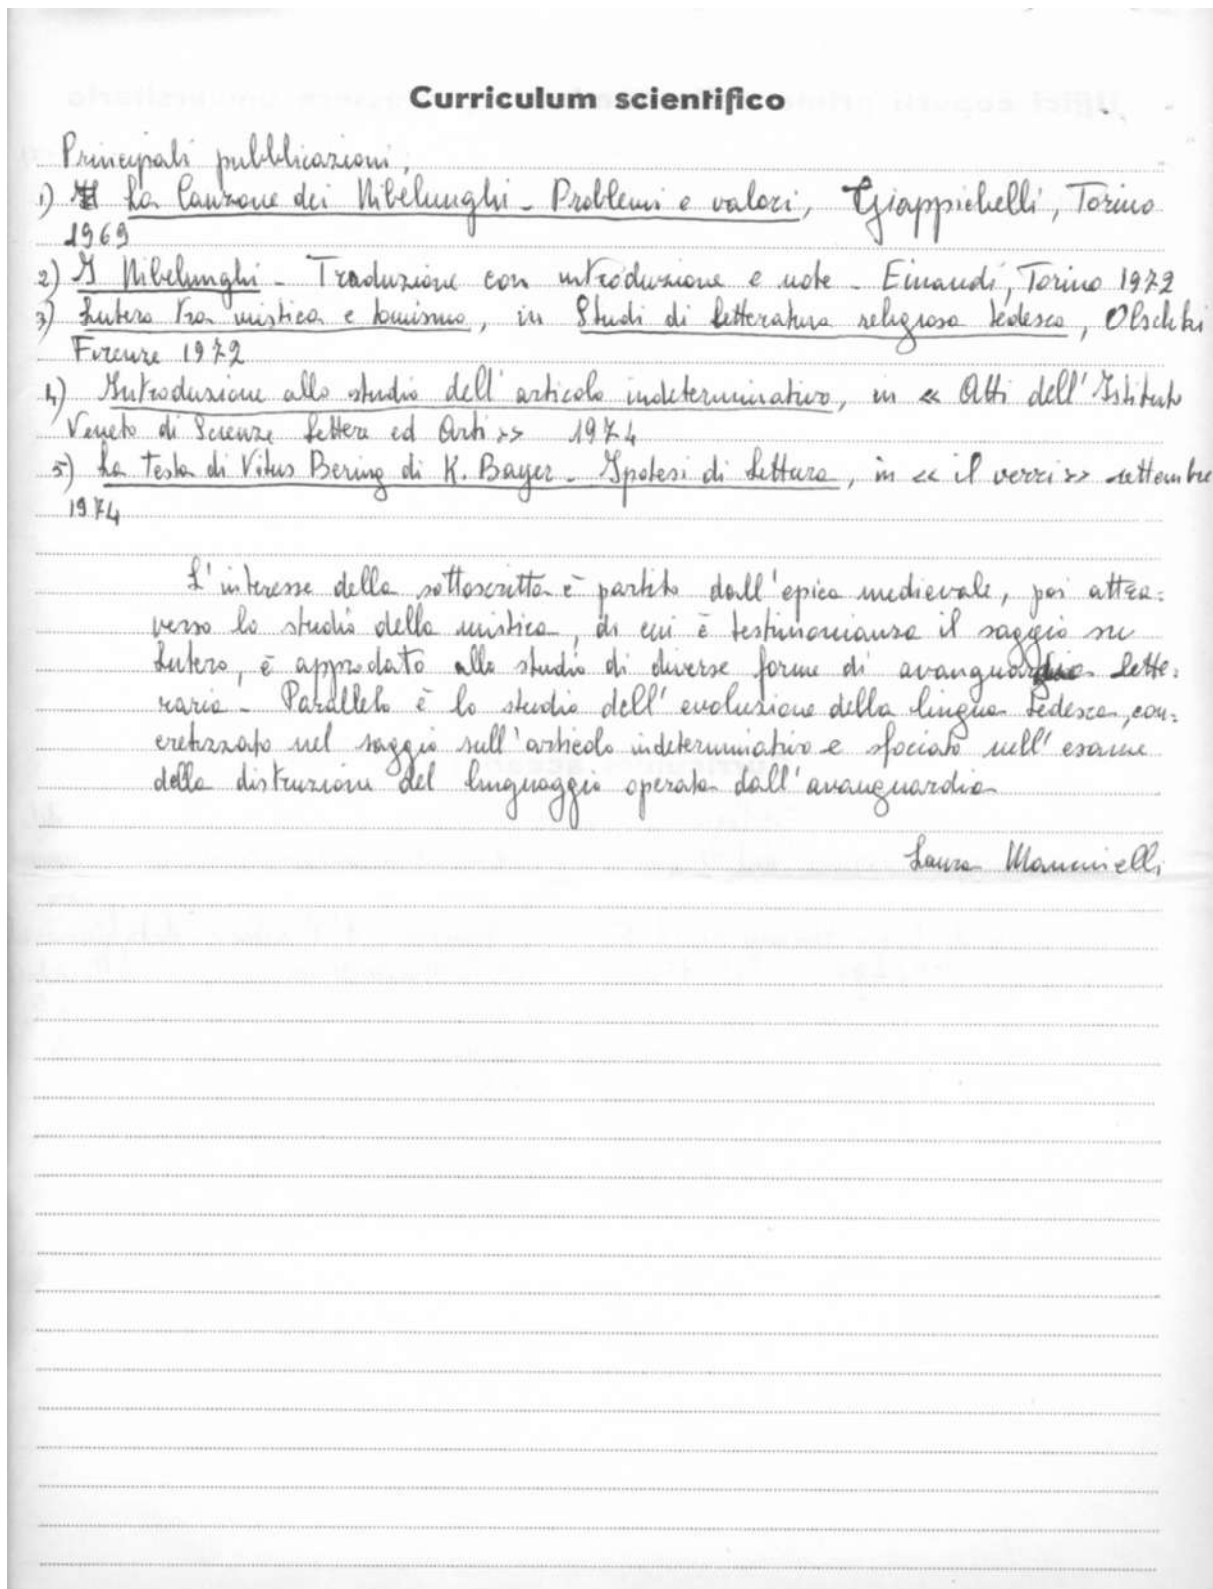 Curriculum scientifico
Principali pubblicazioni,
1) La Canzone dei Nibelunghi - Problemi e valori, Giappichelli, Torino
1969
2) I Nibelunghi - Traduzione con introduzione e note - Einaudi, Torino 1972
3) Lutero tra mistica e tomismo, in Studi di letteratura religiosa tedesca, Olschki
Firenze 1972
4) Introduzione allo studio dell'articolo indeterminativo, in « Atti dell'Istituto
Veneto di Scienze Lettere ed Arti » 1974
5) La testa di Vitus Bering di K. Bayer - Ipotesi di lettura, in « il verri » settembre
1974
L'interesse della sottoscritta è partito dall'epica medievale, poi attra=
verso lo studio della mistica, di cui è testimonianza il saggio su
Lutero, è approdato allo studio di diverse forme di avanguardia lette=
raria - Parallelo è lo studio dell'evoluzione della lingua tedesca, con=
cretizzato nel saggio sull'articolo indeterminativo e sfociato nell'esame
della distruzione del linguaggio operata dall'avanguardia
Laura Mancinelli